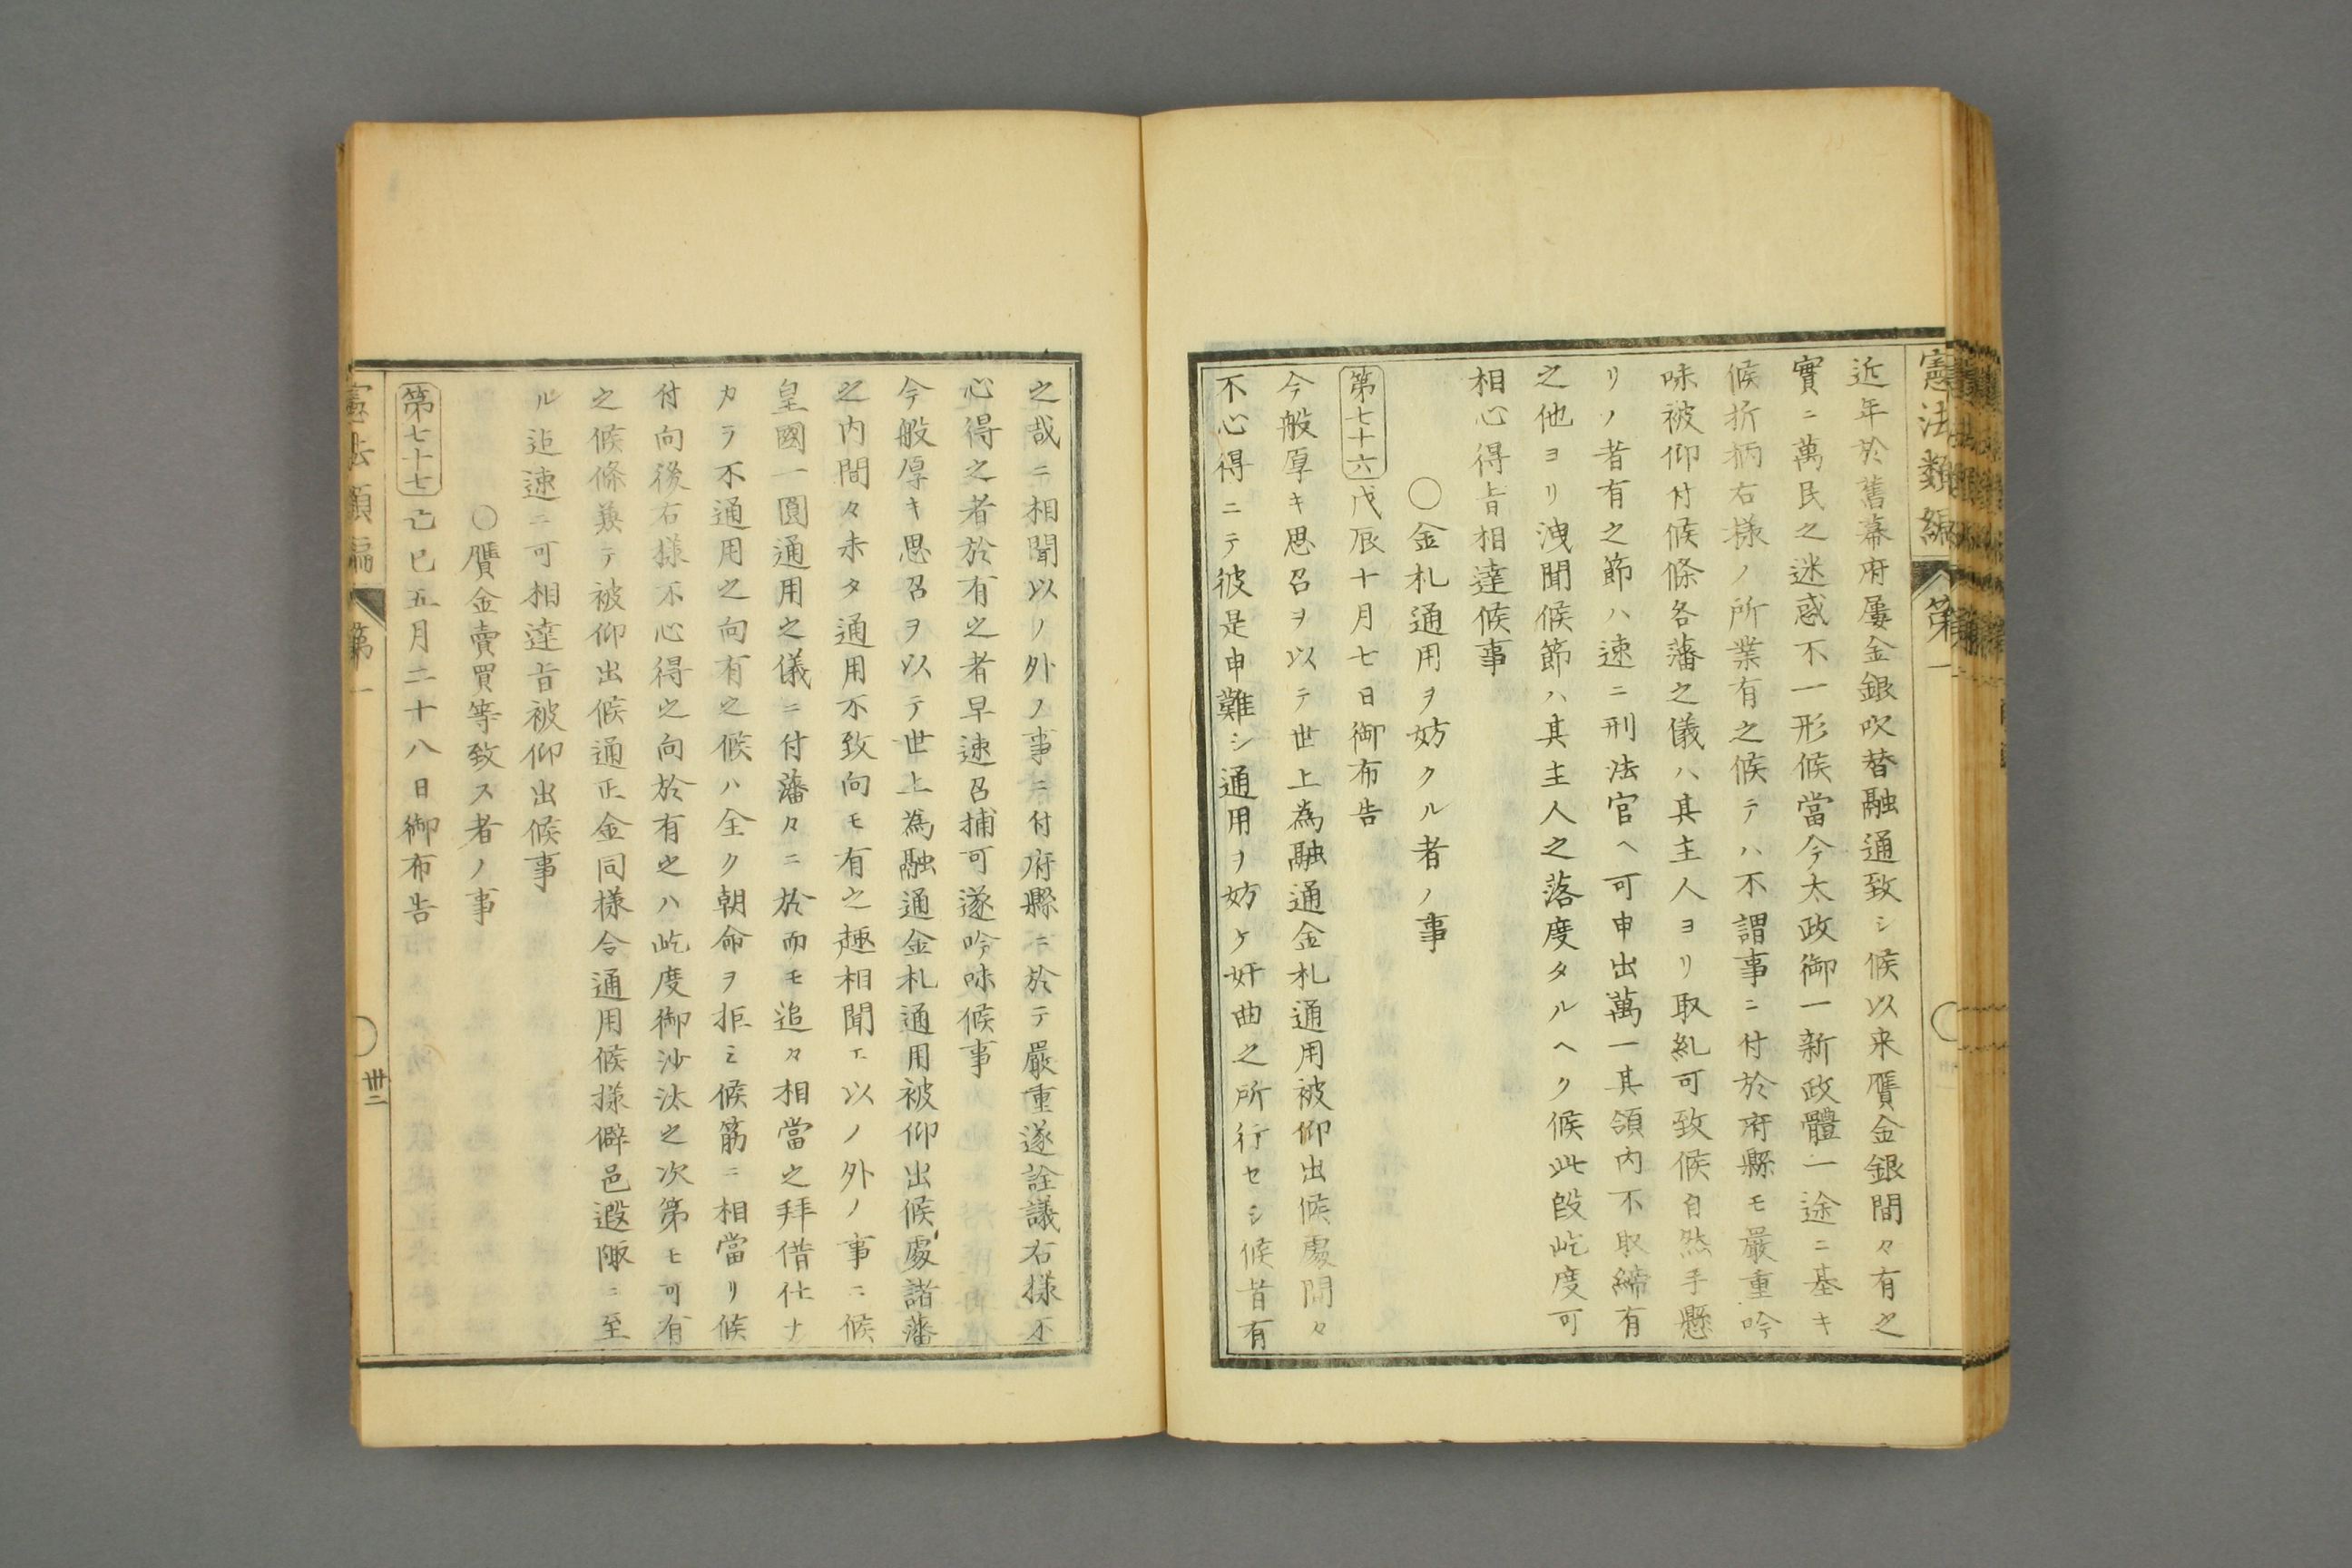 憲法類編 第一
近年於舊幕府屢金銀吹替融通致シ候以来贋金銀間々有之
實ニ萬民之迷惑不一形候當今太政御一新政體一途ニ基キ
候折柄右様ノ所業有之候テハ不謂事ニ付於府縣モ嚴重吟
味被仰付候條各藩之儀ハ其主人ヨリ取糺可致候自然手懸
リノ者有之節ハ速ニ刑法官ヘ可申出萬一其領内不取締有
之他ヨリ洩聞候節ハ其主人之落度タルヘク候此段屹度可
相心得旨相達候事
○金札通用ヲ妨クル者ノ事
第七十六 戊辰十月七日御布告
今般厚キ思召ヲ以テ世上為融通金札通用被仰出候處間々
不心得ニテ彼是申難シ通用ヲ妨ケ奸曲之所行セシ候昔有
之哉ニ相聞以ノ外ノ事ニ付府縣ニ於テ嚴重遂詮議右様不
心得之者於有之者早速召捕可遂吟味候事
今般厚キ思召ヲ以テ世上為融通金札通用被仰出候處諸藩
之内間々未タ通用不致向モ有之趣相聞エ以ノ外ノ事ニ候
皇國一圓通用之儀ニ付藩々ニ於而モ追々相當之拜借仕ナ
カラ不通用之向有之候ハ全ク朝命ヲ拒ミ候筋ニ相當リ候
付向後右様不心得之向於有之ハ屹度御沙汰之次第モ可有
之候條兼テ被仰出候通正金同様令通用候様僻邑遐陬ニ至
ル迠速ニ可相達旨被仰出候事
○贋金賣買等致ス者ノ事
第七十七 己巳五月二十八日御布告
憲法類編 第一 卅二